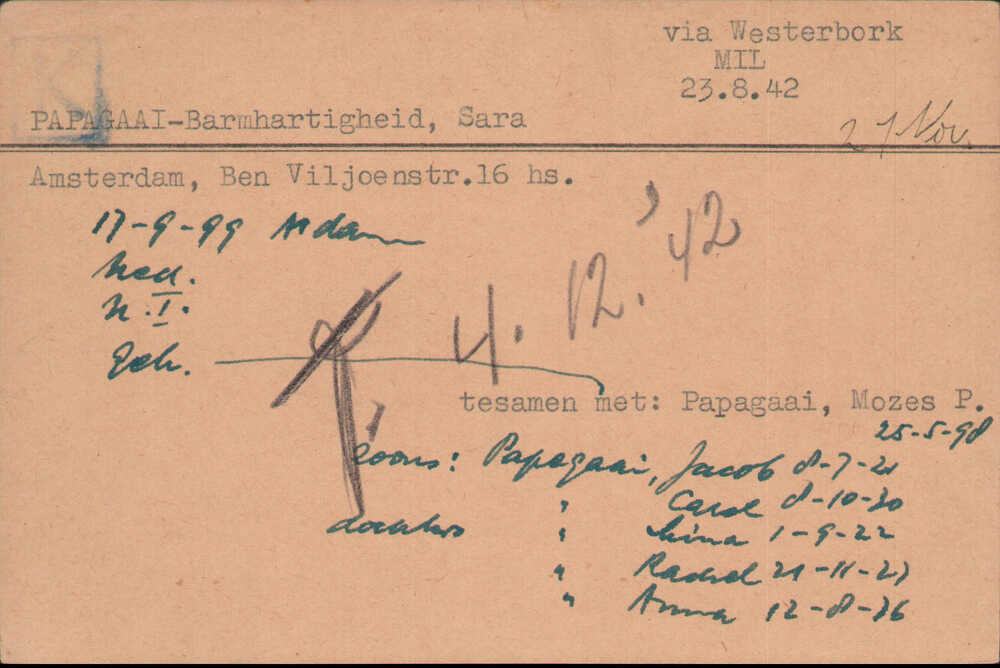 via Westerbork
MIL
23.8.42
PAPAGAAI-Barmhartigheid, Sara
27 Nov.
Amsterdam, Ben Viljoenstr.16 hs.
17-9-99 A'dam
Ned.
N.I.
Geh.
4.12.'42
tesamen met: Papagaai, Mozes P.
25-5-98
zoons: Papagaai, Jacob 8-7-21
" Carel 8-10-30
dochters " Sima 1-9-22
" Rachel 21-11-27
" Anna 12-8-36